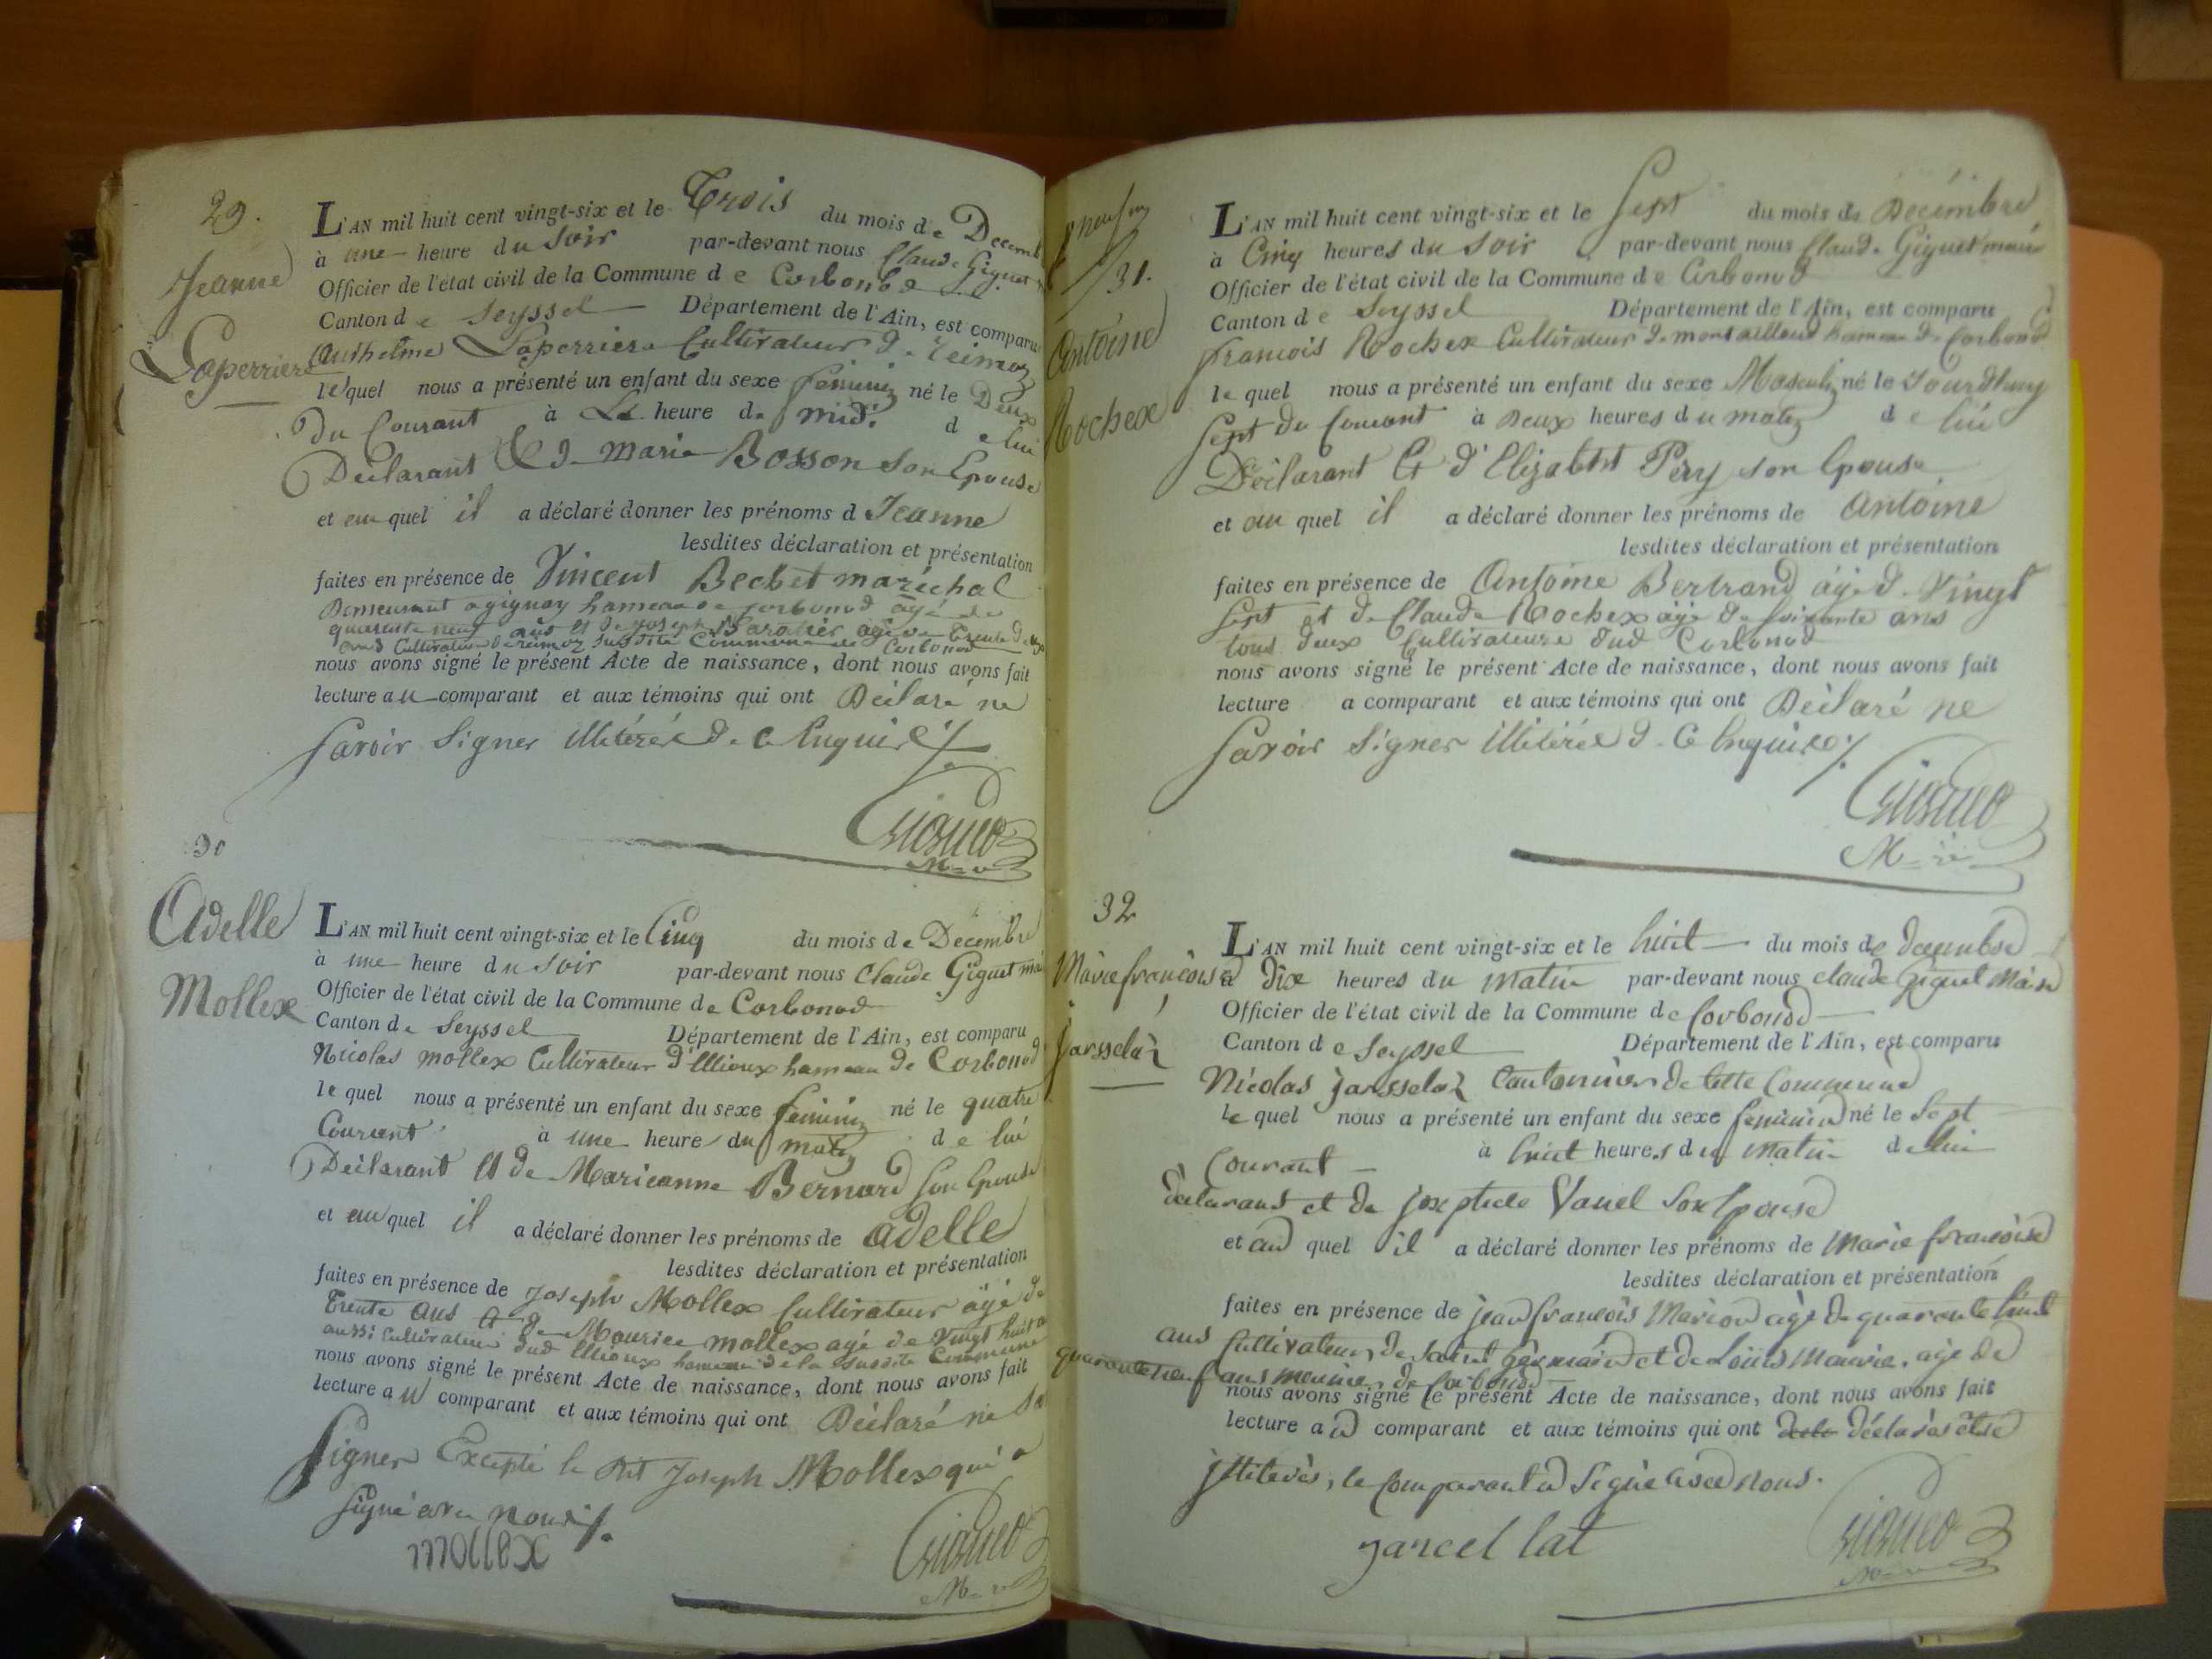 29.
Jeanne
Laperriere
L'AN mil huit cent vingt-six et le Trois du mois de Decemb
à une heure du Soir par-devant nous Claude Giguet
Officier de l'état civil de la Commune de Corbonod
Canton de Seyssel Département de l'Ain, est comparu
Anthelme Laperriere Cultivateur de Reimoz
lequel nous a présenté un enfant du sexe feminin né le Deux
Du Courant à heure de midi de lui
Déclarant Et de marie Bosson Son Epouse
et au quel il a déclaré donner les prénoms d Jeanne
lesdites déclaration et présentation
faites en présence de Vincent Bechet maréchal
Demeurant a gignay hameau de corbonod âgé de
quarente neuf ans et de joseph agé de Trente Deux
ans Cultivateur de reimoz Susdite Commune de Corbonod
nous avons signé le présent Acte de naissance, dont nous avons fait
lecture au comparant et aux témoins qui ont Déclaré ne
Savoir Signer illitérés de ce Enquis ./.
Giguet
M-re
30
Adelle
Mollex
L'AN mil huit cent vingt-six et le Cinq du mois de Decembre
à une heure du soir par-devant nous Claude Giguet mai
Officier de l'état civil de la Commune de Corbonod
Canton de Seyssel Département de l'Ain, est comparu
Nicolas mollex Cultivateur d'Illioux hameau de Corbonod
lequel nous a présenté un enfant du sexe feminin né le quatre
Courant à une heure du matin de lui
Déclarant Et de Marieanne Bernard Son Epouse
et au quel il a déclaré donner les prénoms de adelle
lesdites déclaration et présentation
faites en présence de Joseph Mollex Cultivateur âgé de
Trente ans Et de Maurice mollex agé de vingt huit
aussi Cultivateur dud Illioux hameau de la susdite Commune
nous avons signé le présent Acte de naissance, dont nous avons fait
lecture au comparant et aux témoins qui ont Déclaré ne
Signer Excepté le dit Joseph Mollex qui a
signé avec nous ./.
mollex
Giguet
M-re
31.
Antoine
Rochex
L'AN mil huit cent vingt-six et le Sept du mois de Décembre
à Cinq heures du Soir par-devant nous Claude Giguet maire
Officier de l'état civil de la Commune de Corbonod
Canton de Seyssel Département de l'Ain, est comparu
francois Rochex Cultivateur de montailloud hameau de Corbonod
le quel nous a présenté un enfant du sexe Masculin né le Jourdhuy
Sept du Courant à Deux heures du matin de lui
Déclarant Et d'Elizabeht Pery son Epouse
et au quel il a déclaré donner les prénoms de antoine
lesdites déclaration et présentation
faites en présence de Antoine Bertrand âgé de Vingt
sept et de Claude Rochex âgé de soixante ans
tous deux Cultivateurs dud Corbonod
nous avons signé le présent Acte de naissance, dont nous avons fait
lecture a comparant et aux témoins qui ont Déclaré ne
Savoir Signer illitérés de ce Enquis ./.
Giguet
M-re
32
Marie françoise
jarsselat
L'AN mil huit cent vingt-six et le huit du mois de decembre
à dix heures du matin par-devant nous claude giguet Maire
Officier de l'état civil de la Commune de Corbonod
Canton de Seyssel Département de l'Ain, est comparu
Nicolas jarsselat Cantonnier de cette Commune
le quel nous a présenté un enfant du sexe feminin né le Sept
Courant à huit heures du matin de lui
declarant et de Vanel son Epouse
et au quel il a déclaré donner les prénoms de Marie françoise
lesdites déclaration et présentation
faites en présence de jean françois Marion agé de quarante huit
ans Cultivateur de Saint germain et de Louis Maurie, agé de
quarante neuf ans meunier de Corbonod
nous avons signé le présent Acte de naissance, dont nous avons fait
lecture au comparant et aux témoins qui ont déclarés etre
jllitérés, le comparant a Signé avec nous.
jarcellat
Giguet
M-re